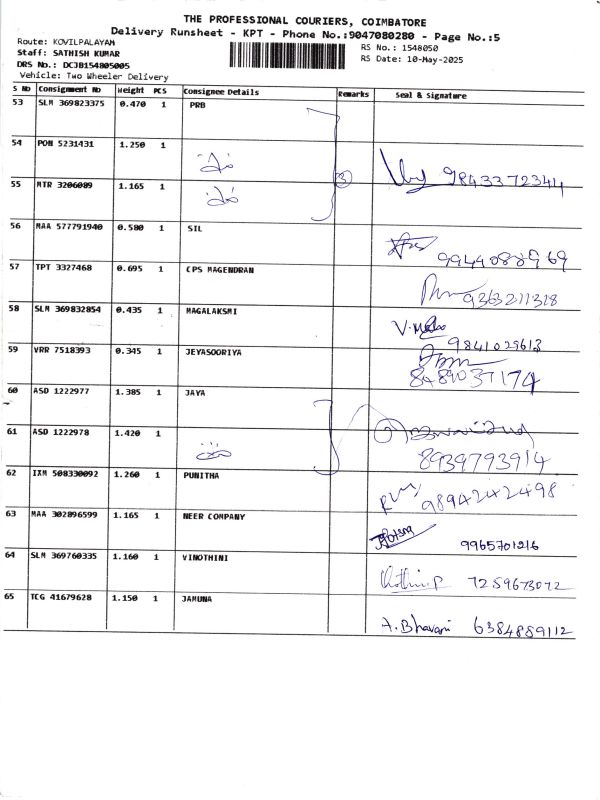 THE PROFESSIONAL COURIERS, COIMBATORE
Delivery Runsheet - KPT - Phone No.:9047080280 - Page No.:5
Route: KOVILPALAYAM
Staff: SATHISH KUMAR
DRS No.: DCJB154805005
Vehicle: Two Wheeler Delivery
RS No.: 1548050
RS Date: 10-May-2025
S No Consignment No Weight PCS Consignee Details Remarks Seal & Signature
53 SLM 369823375 0.470 1 PRB
54 PON 5231431 1.250 1
3 9843372344
55 MTR 3206089 1.165 1
56 MAA 577791940 0.580 1 SIL
57 TPT 3327468 0.695 1 CPS MAGENDRAN
9363211318
58 SLM 369832854 0.435 1 MAGALAKSMI
9841029613
59 VRR 7518393 0.345 1 JEYASOORIYA
8489037174
60 ASD 1222977 1.385 1 JAYA
61 ASD 1222978 1.420 1
8939793914
62 IXM 508330092 1.260 1 PUNITHA
9894242498
63 MAA 302896599 1.165 1 NEER COMPANY
9965701216
64 SLM 369760335 1.160 1 VINOTHINI
7259673072
65 TCG 41679628 1.150 1 JAMUNA
A. Bhavani 6384889112